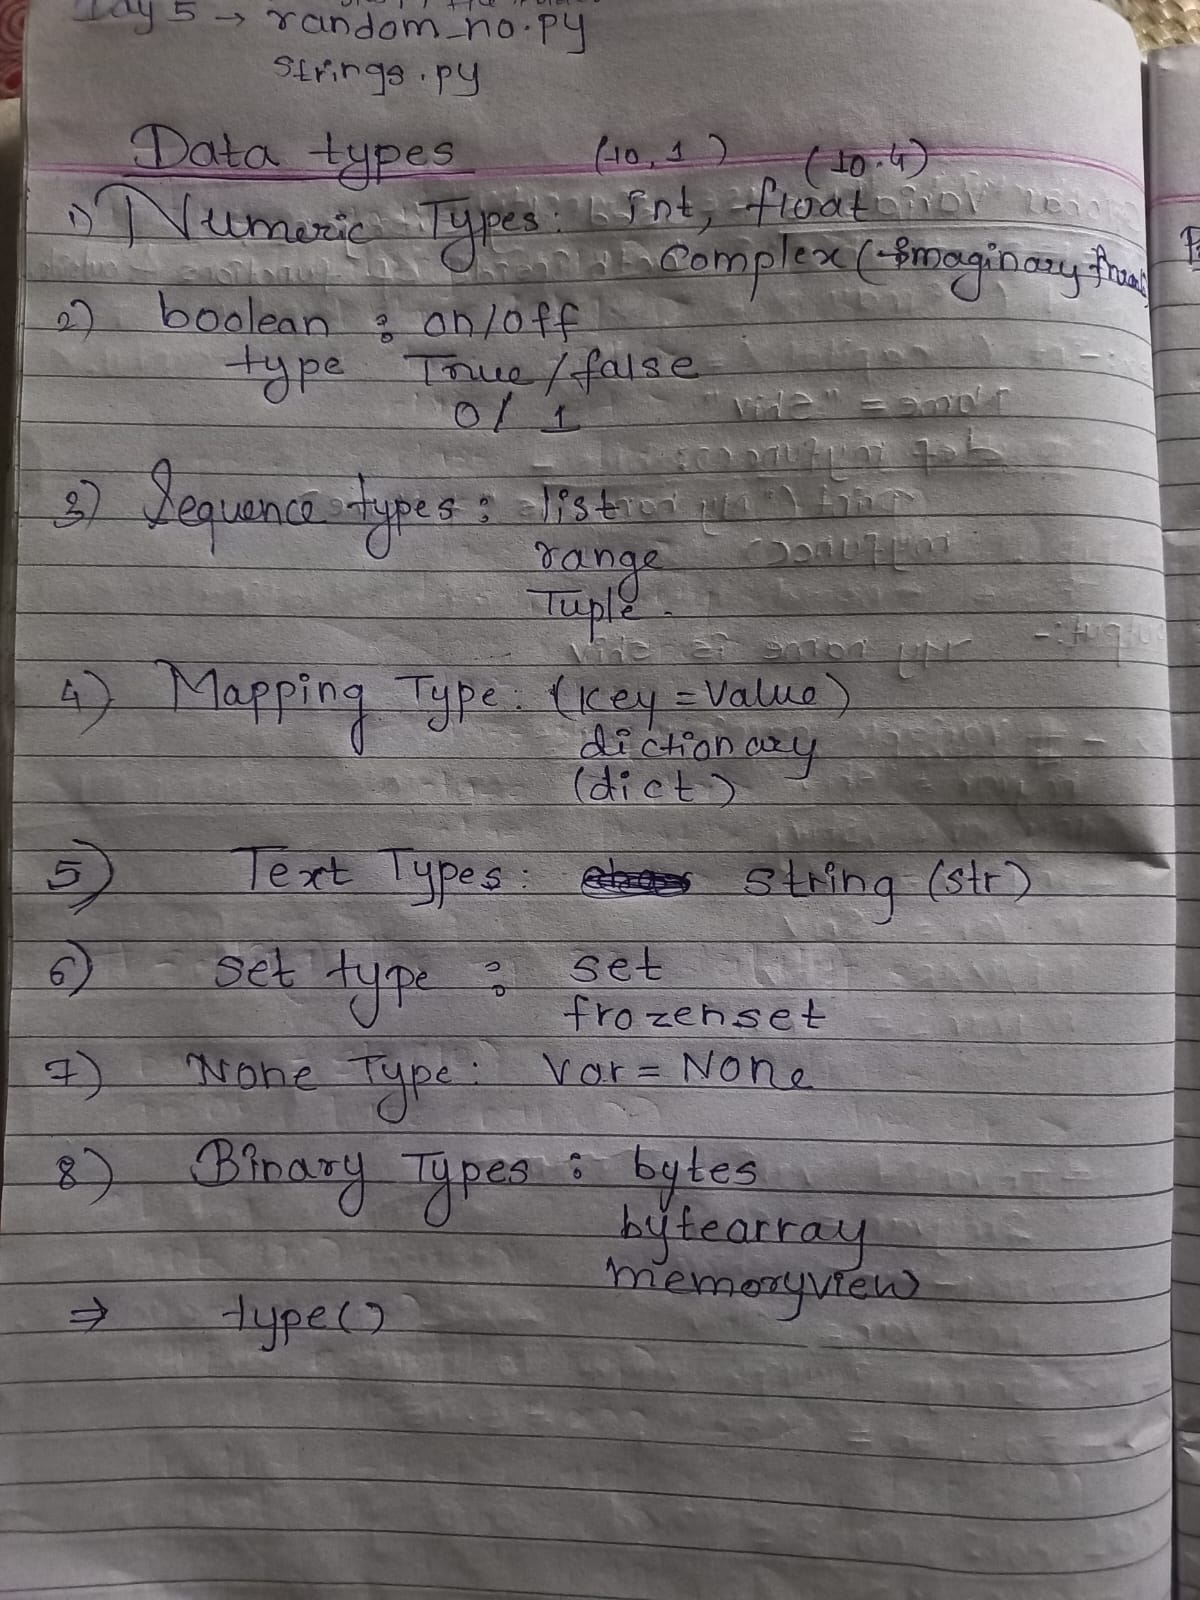 Day 5 → random_no.py
strings.py
Data types (10, 1) (10.4)
1) Numeric Types: int, float
Complex (Imaginary
2) boolean : on/off
type True/false
0/ 1
3) Sequence types : list
range
Tuple -
4) Mapping Type: (key = Value)
dictionary
(dict)
5) Text Types: string (str)
6) set type : set
frozenset
7) None Type: Var = None
8) Binary Types : bytes
bytearray
memoryview
⇒ type()